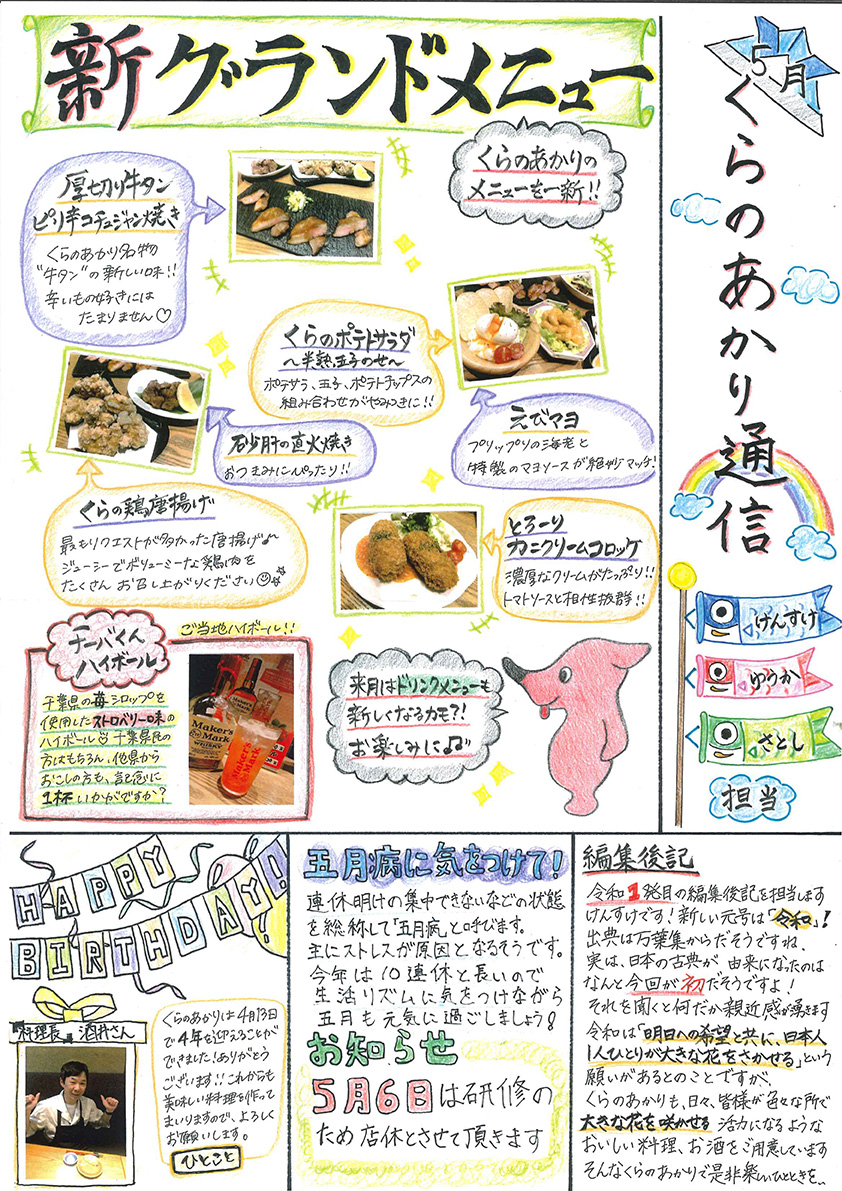 新グランドメニュー
5月
くらのあかり通信
くらのあかりの
メニューを一新!!
厚切り牛タン
ピリ辛コチュジャン焼き
くらのあかり名物
"牛タン"の新しい味!!
辛いもの好きには
たまりません♡
くらのポテトサラダ
〜半熟玉子のせ〜
ポテサラ、玉子、ポテトチップスの
組み合わせがやみつきに!!
えびマヨ
プリップリの海老と
特製のマヨソースが絶妙にマッチ!
砂肝の直火焼き
おつまみにぴったり!!
くらの鶏唐揚げ
最もリクエストが多かった唐揚げ♪
ジューシーでボリューミーな鶏肉を
たくさんお召し上がりください☺
とろーり
カニクリームコロッケ
濃厚なクリームがたっぷり!!
トマトソースと相性抜群!!
チーバくん
ハイボール
ご当地ハイボール!!
千葉県の苺シロップを
使用したストロベリー味の
ハイボール♡千葉県民の
方はもちろん、他県から
お越しの方も、記念に
1杯いかがですか?
Maker's
Mark
WHISKY
来月はドリンクメニューも
新しくなるカモ?!
お楽しみに♫
けんすけ
ゆうか
さとし
担当
HAPPY
BIRTHDAY!
料理長 酒井さん
くらのあかりは4月13日
で4年を迎えることが
できました!ありがとう
ございます!!これからも
美味しい料理を作って
まいりますので、よろしく
お願いします。
ひとこと
五月病に気をつけて!
連休明けの集中できないなどの状態
を総称して「五月病」と呼びます。
主にストレスが原因となるそうです。
今年は10連休と長いので
生活リズムに気をつけながら
五月も元気に過ごしましょう!
お知らせ
5月6日は研修の
ため店休とさせて頂きます
編集後記
令和1発目の編集後記を担当します
けんすけです!新しい元号は「令和」!
出典は万葉集からだそうですね。
実は、日本の古典が由来になったのは
なんと今回が初だそうですよ!
それを聞くと何だか親近感が湧きます
令和は「明日への希望と共に、日本人
1人ひとりが大きな花をさかせる」という
願いがあるとのことですが、
くらのあかりも、日々、皆様が色々な所で
大きな花を咲かせる活力になるような
おいしい料理、お酒をご用意しています
そんなくらのあかりで是非楽しいひとときを、、